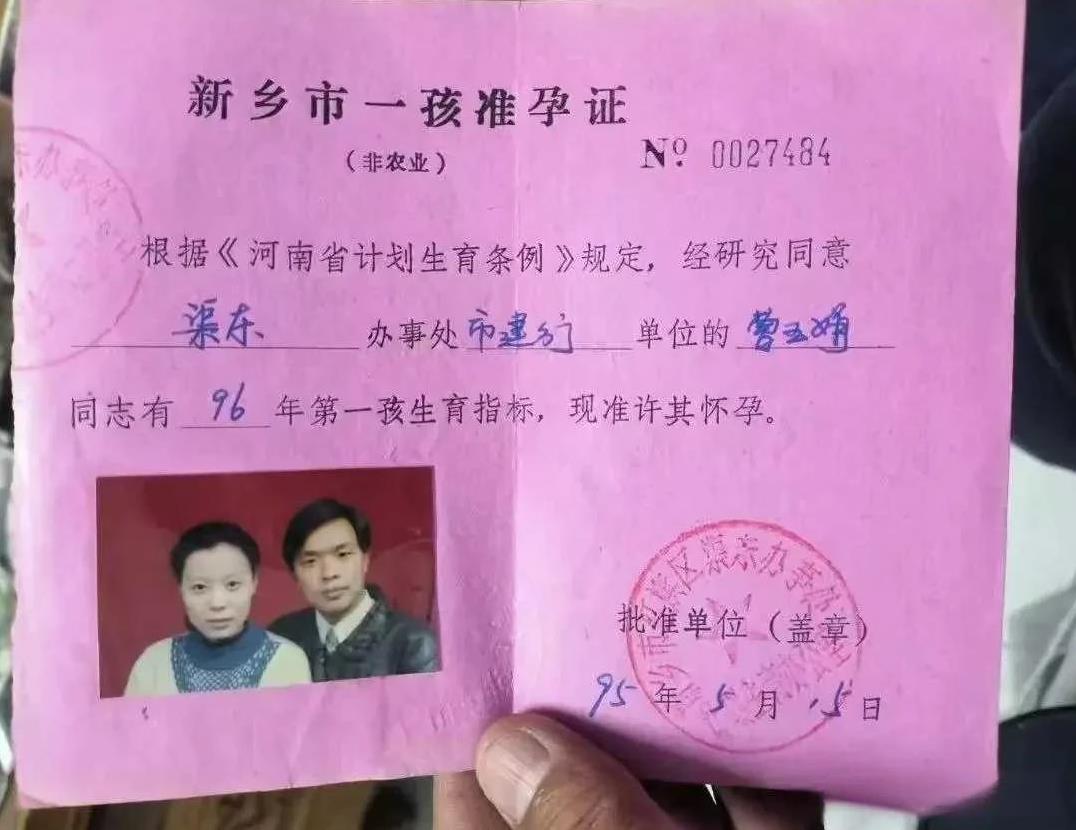 新乡市一孩准孕证
（非农业）
Nº 0027484
根据《河南省计划生育条例》规定，经研究同意
渠东 办事处 市建行 单位的 曹玉娟
同志有 96 年第一孩生育指标，现准许其怀孕。
区渠东办事
批准单位（盖章）
95 年 5 月 15 日